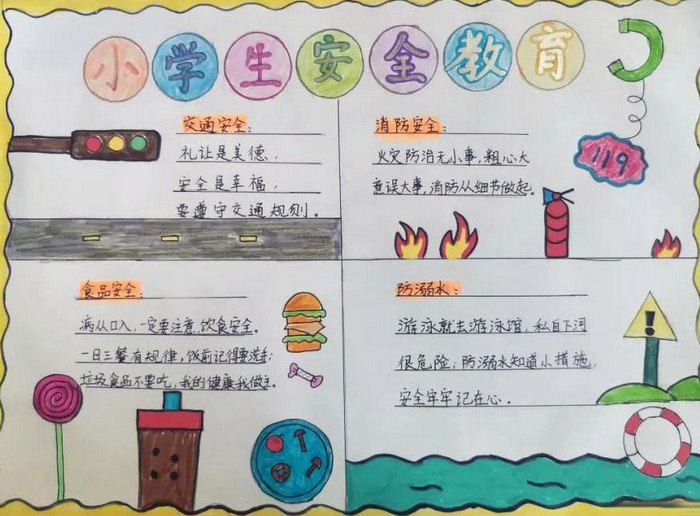 小学生安全教育
交通安全：
礼让是美德，
安全是幸福，
要遵守交通规则。
消防安全：
火灾防治无小事，粗心大
意误大事，消防从细节做起。
119
食品安全：
病从口入，一定要注意饮食安全。
一日三餐有规律，饭前记得要洗手；
垃圾食品不要吃，我的健康我做主。
防溺水：
游泳就去游泳馆，私自下河
很危险；防溺水知道小措施，
安全牢牢记在心。
!